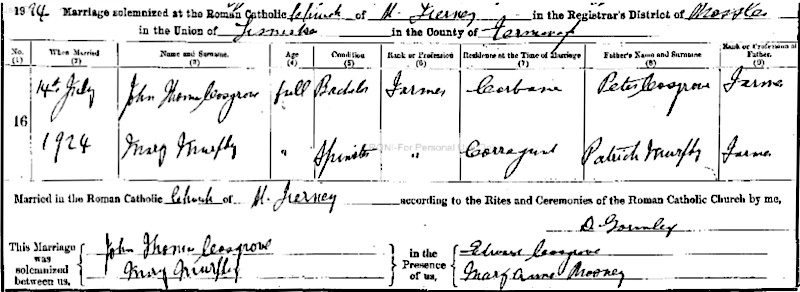 1924 Marriage solemnized at the Roman Catholic Church of St. Tierney in the Registrar's District of
in the Union of in the County of Fermanagh
No. When Married Name and Surname. Age Condition Rank or Profession Residence at the Time of Marriage Father's Name and Surname Rank or Profession of Father.
(1) (2) (3) (4) (5) (6) (7) (8) (9)
14th July John Thomas Cosgrove full Bachelor Farmer Corbane Peter Cosgrove Farmer
16
1924 Mary Murphy " Spinster " Corragunt Patrick Murphy Farmer
PRONI-For Personal U
Married in the Roman Catholic Church of St. Tierney according to the Rites and Ceremonies of the Roman Catholic Church by me,
D. Gormley
This Marriage was solemnized between us, John Thomas Cosgrove in the Presence of us, Edward Cosgrove
Mary Murphy Mary Anne Mooney